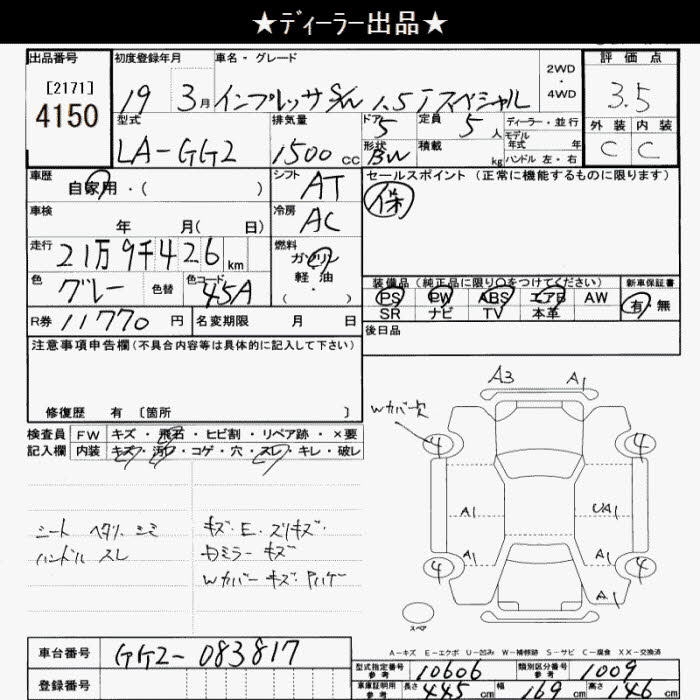 ★ディーラー出品★
出品番号
[2171]
4150
初度登録年月
19 3月
車名・グレード
インプレッサS/W 1.5iスペシャル
2WD
・
4WD
評価点
3.5
外装 内装
C C
型式
LA-GG2
排気量
1500cc
ドア
5
形状
BW
定員
5人
積載
kg
ディーラー・並行
モデル
年式 年
ハンドル 左・右
車歴
自家用・( )
シフト
AT
車検
年 月( 日)
冷房
AC
走行
21万9千426km
燃料
ガソリン
軽油
( ・ )
色
グレー
色替
色コード
45A
R券 11770円
名変期限 月 日
セールスポイント(正常に機能するものに限ります)
保
装備品(純正品に限り○をつけてください)
新車保証書
PS PW ABS エアB AW
SR ナビ TV 本革
有・無
後日品
注意事項申告欄(不具合内容等は具体的に記入して下さい)
修復歴 有 〔箇所 〕
検査員
記入欄
FW キズ・飛石・ヒビ割・リペア跡・×要
内装 キズ・汚レ・コゲ・穴・スレ・キレ・破レ
シート ヘタリ シミ
ハンドル スレ
キズ・E・スリキズ・
ミラー キズ
Wカバー キズ・
A3 A1
Wカバー欠
4 4
A1 UA1
A1 A1
4 4
A1
スペア
A-キズ E-エクボ U-凹み W-補修跡 S-サビ C-腐食 XX-交換済
車台番号 GG2-083817
登録番号
型式指定番号
参考
10606
類別区分番号
参考
1009
車庫証明用
参考
長さ 445cm 幅 169cm 高さ 146cm